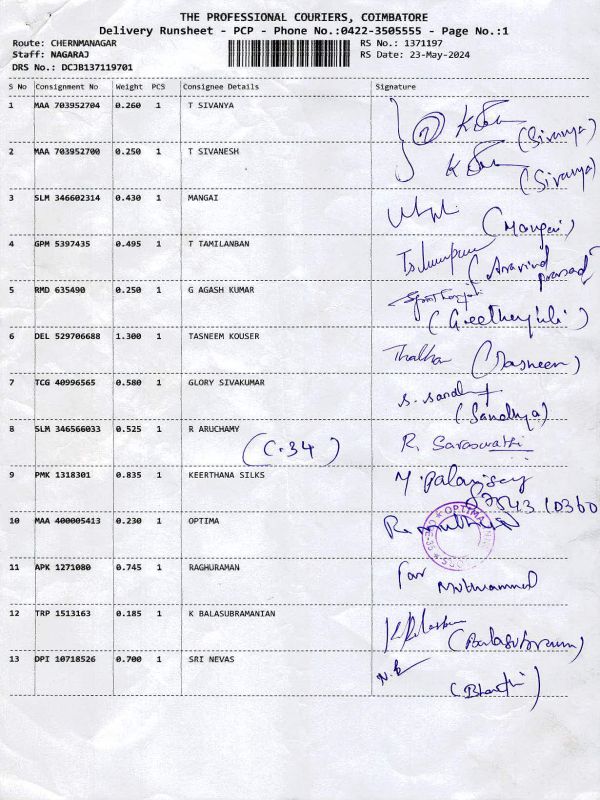 THE PROFESSIONAL COURIERS, COIMBATORE
Delivery Runsheet - PCP - Phone No.:0422-3505555 - Page No.:1
Route: CHERNMANAGAR RS No.: 1371197
Staff: NAGARAJ RS Date: 23-May-2024
DRS No.: DCJB137119701
S No Consignment No Weight PCS Consignee Details Signature
1 MAA 703952704 0.260 1 T SIVANYA (Sivanya)
2 MAA 703952700 0.250 1 T SIVANESH (Sivanya)
3 SLM 346602314 0.430 1 MANGAI (Mangai)
4 GPM 5397435 0.495 1 T TAMILANBAN (Aravind prasad)
5 RMD 635490 0.250 1 G AGASH KUMAR (Geethanjali)
6 DEL 529706688 1.300 1 TASNEEM KOUSER Thalha (Tasneem)
7 TCG 40996565 0.580 1 GLORY SIVAKUMAR (Sandhya)
8 SLM 346566033 0.525 1 R ARUCHAMY R. Saraswathi
(C.34)
9 PMK 1318301 0.835 1 KEERTHANA SILKS
10 MAA 400005413 0.230 1 OPTIMA OPTIMA
11 APK 1271080 0.745 1 RAGHURAMAN
12 TRP 1513163 0.185 1 K BALASUBRAMANIAN
13 DPI 10718526 0.700 1 SRI NEVAS (Bharathi)